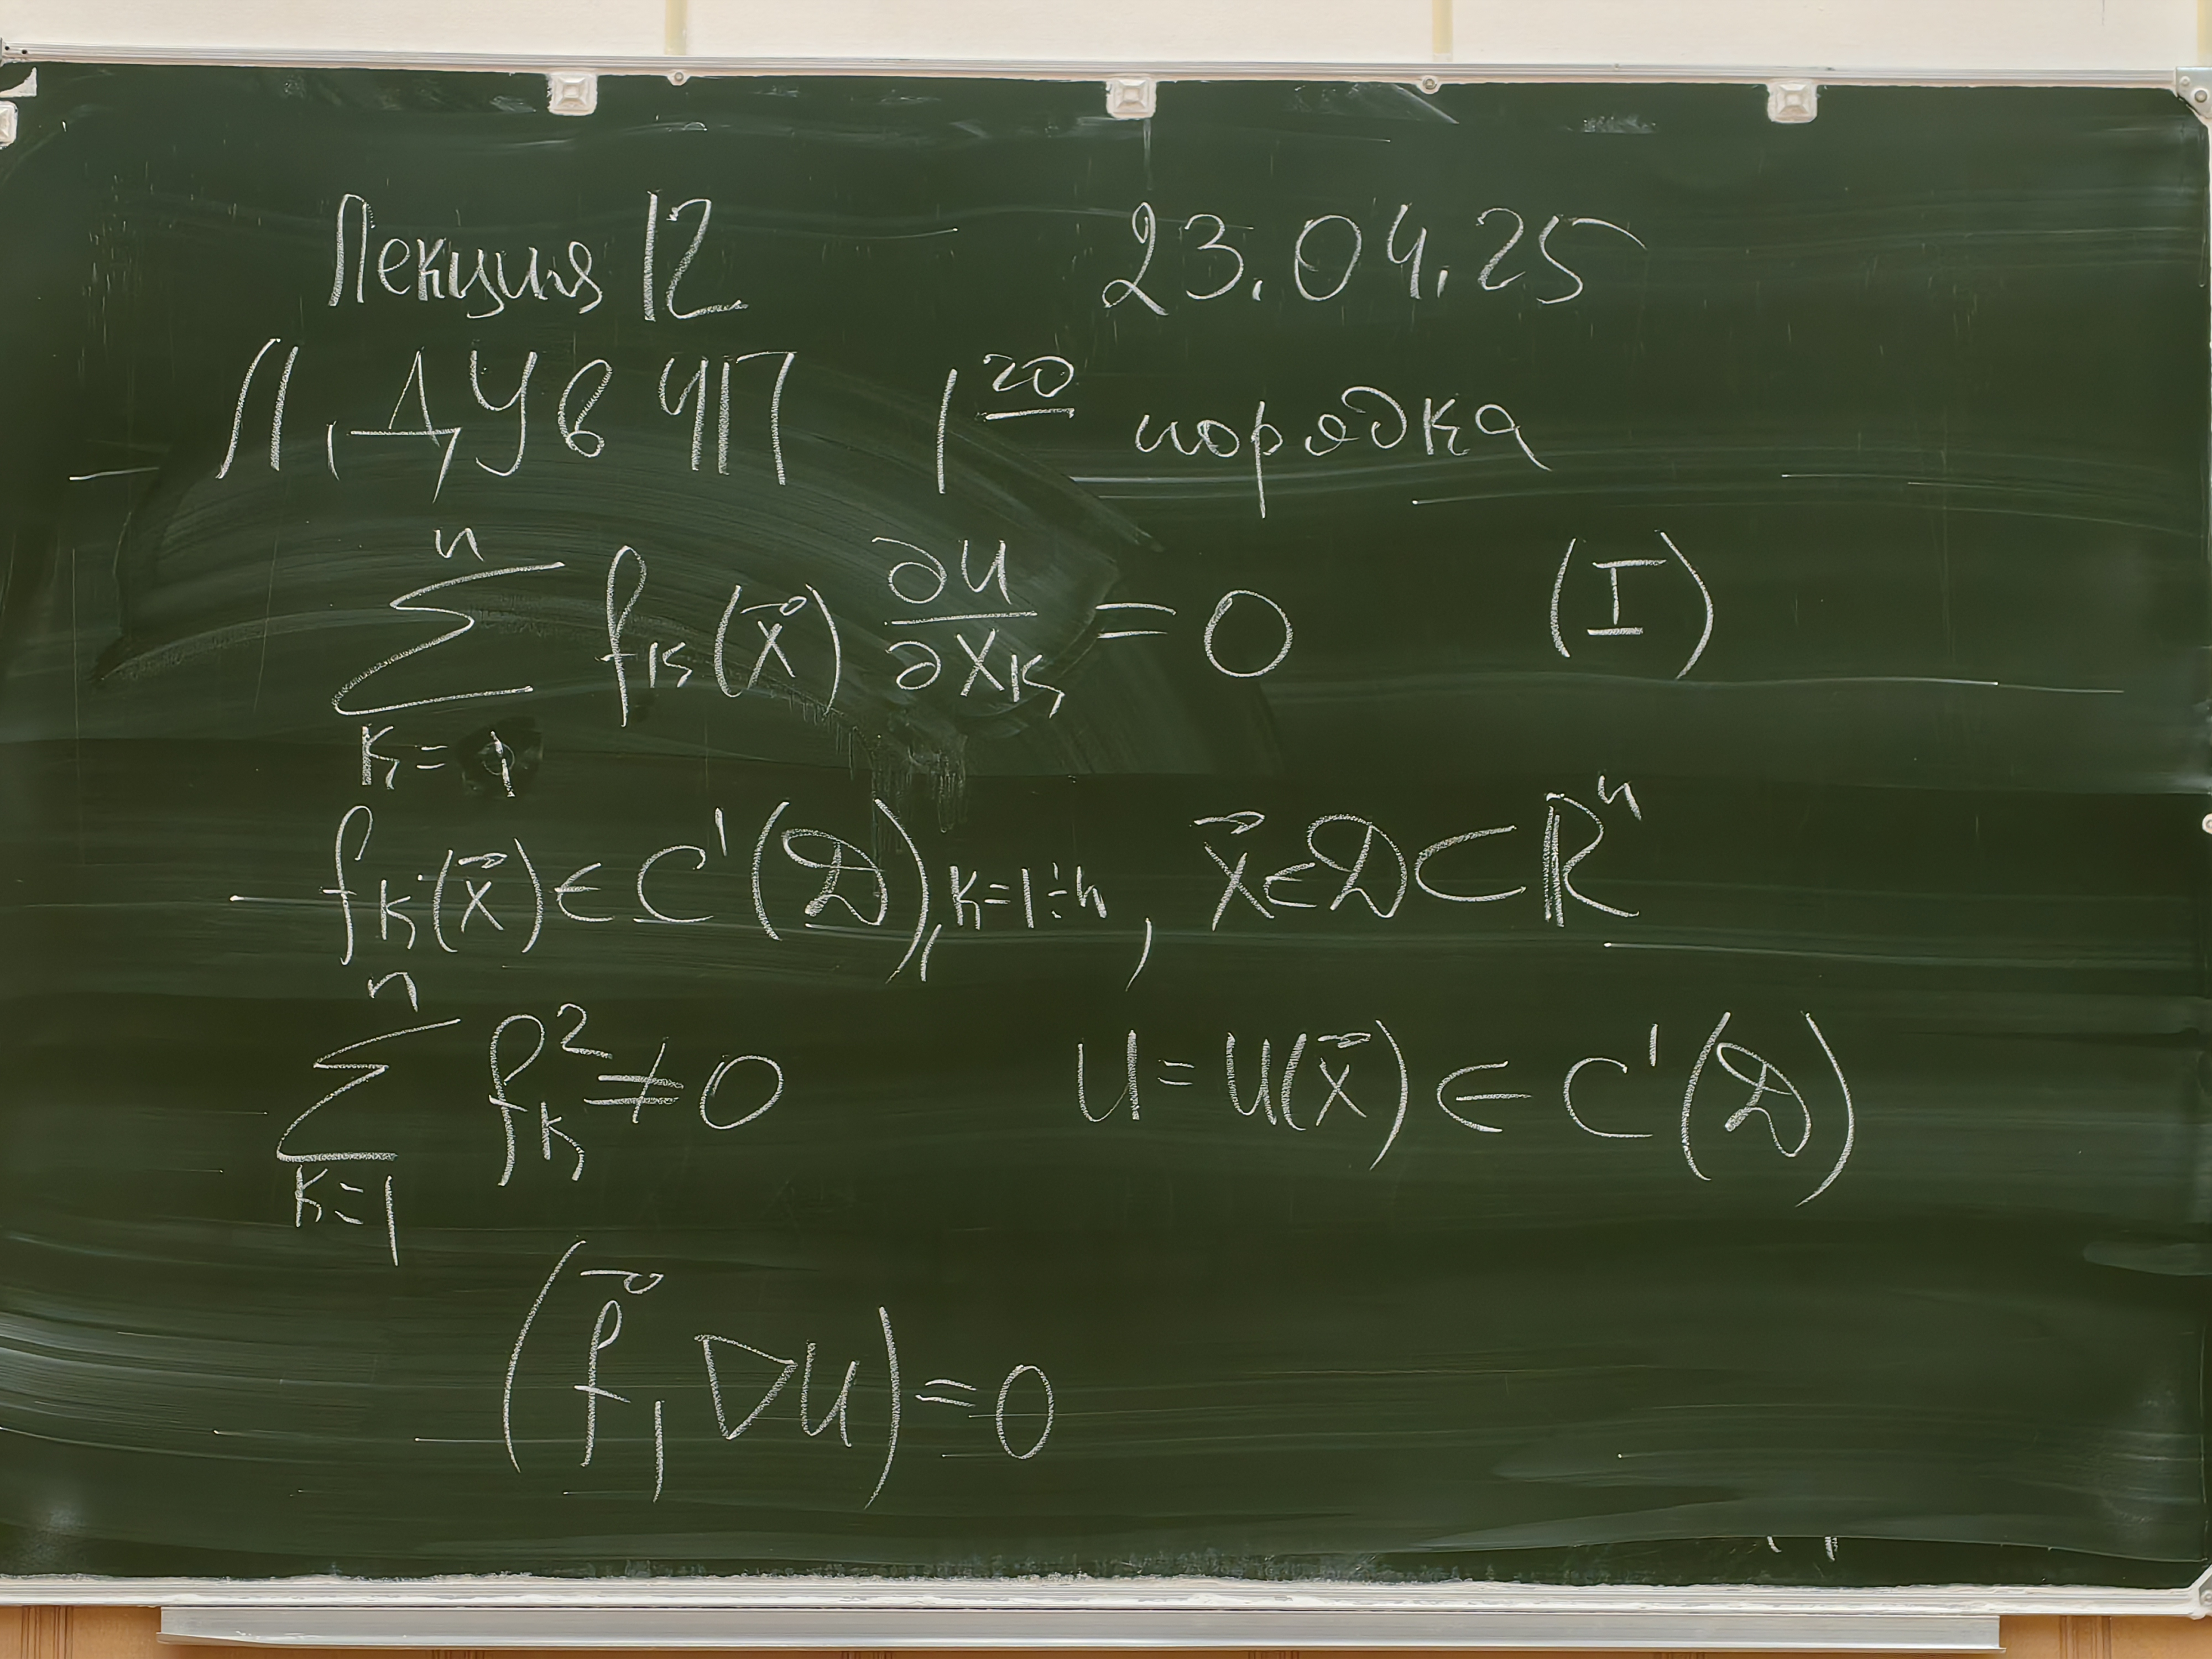 Лекция 12 23.04.25
Л, ДУ в ЧП 1го порядка
∑_{k=1}^{n} f_k(x⃗) ∂u/∂x_k = 0 (I)
f_k(x⃗) ∈ C¹(𝒟), k=1÷n, x⃗ ∈ 𝒟 ⊂ ℝⁿ
∑_{k=1}^{n} f_k² ≠ 0 u = u(x⃗) ∈ C¹(𝒟)
(f⃗, ∇u) = 0